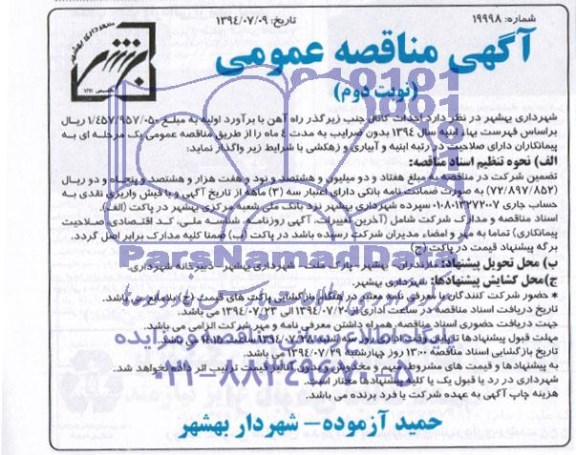 شماره: ۱۹۹۹۸
تاریخ: ۱۳۹۴/۰۷/۰۹
آگهی مناقصه عمومی
(نوبت دوم)
شهرداری بهشهر در نظر دارد احداث کانال جنب زیرگذر راه آهن با برآورد اولیه به مبلغ ۱/۴۵۷/۹۵۷/۰۵۰ ریال
براساس فهرست بهاء ابنیه سال ۱۳۹۴ بدون ضرایب به مدت ۴ ماه را از طریق مناقصه عمومی یک مرحله ای به
پیمانکاران دارای صلاحیت در رتبه ابنیه و آبیاری و زهکشی با شرایط زیر واگذار نماید:
الف) نحوه تنظیم اسناد مناقصه:
تضمین شرکت در مناقصه به مبلغ هفتاد و دو میلیون و هشتصد و نود و هفت هزار و هشتصد و پنجاه و دو ریال
(۷۲/۸۹۷/۸۵۲) به صورت ضمانت نامه بانکی دارای اعتبار سه (۳) ماهه از تاریخ آگهی و یا فیش واریزی نقدی به
حساب جاری ۰۱۰۸۰۱۳۲۷۲۰۰۷ سپرده شهرداری بهشهر نزد بانک ملی شعبه مرکزی بهشهر در پاکت (الف).
اسناد مناقصه و مدارک شرکت شامل (آخرین تغییرات، آگهی روزنامه، شناسه ملی، کد اقتصادی، صلاحیت
پیمانکاری) تماما به مهر و امضاء مدیران شرکت رسیده باشد در پاکت (ب) ضمنا کلیه مدارک برابر اصل گردد.
برگه پیشنهاد قیمت در پاکت (ج)
ب) محل تحویل پیشنهاد: مازندران - بهشهر - پارک ملت - شهرداری بهشهر - دبیرخانه شهرداری.
ج) محل گشایش پیشنهادها: شهرداری بهشهر.
* حضور شرکت کنندگان با معرفی نامه معتبر در هنگام بازگشایی پاکت های قیمت (ج) بلامانع می باشد.
تاریخ دریافت اسناد مناقصه در ساعت اداری از ۱۳۹۴/۰۷/۲۰ الی ۱۳۹۴/۰۷/۲۳ می باشد.
جهت دریافت حضوری اسناد مناقصه، همراه داشتن معرفی نامه و مهر شرکت الزامی می باشد.
مهلت قبول پیشنهادها تا پایان وقت اداری روز سه شنبه ۱۳۹۴/۰۷/۲۸
تاریخ بازگشایی اسناد مناقصه ۱۳:۰۰ روز چهارشنبه ۱۳۹۴/۰۷/۲۹ می باشد.
به پیشنهادها و قیمت های مشروط و مبهم و مخدوش و بدون آنالیز قیمت ترتیب اثر داده نخواهد شد.
شهرداری در رد یا قبول یک یا کلیه پیشنهادها مختار است.
هزینه چاپ آگهی به عهده شرکت یا فرد برنده می باشد.
حمید آزموده - شهردار بهشهر
ParsNamadData
پایگاه اطلاع رسانی مناقصه و مزایده
۰۲۱-۸۸۳۴۹۶۷۰-۵